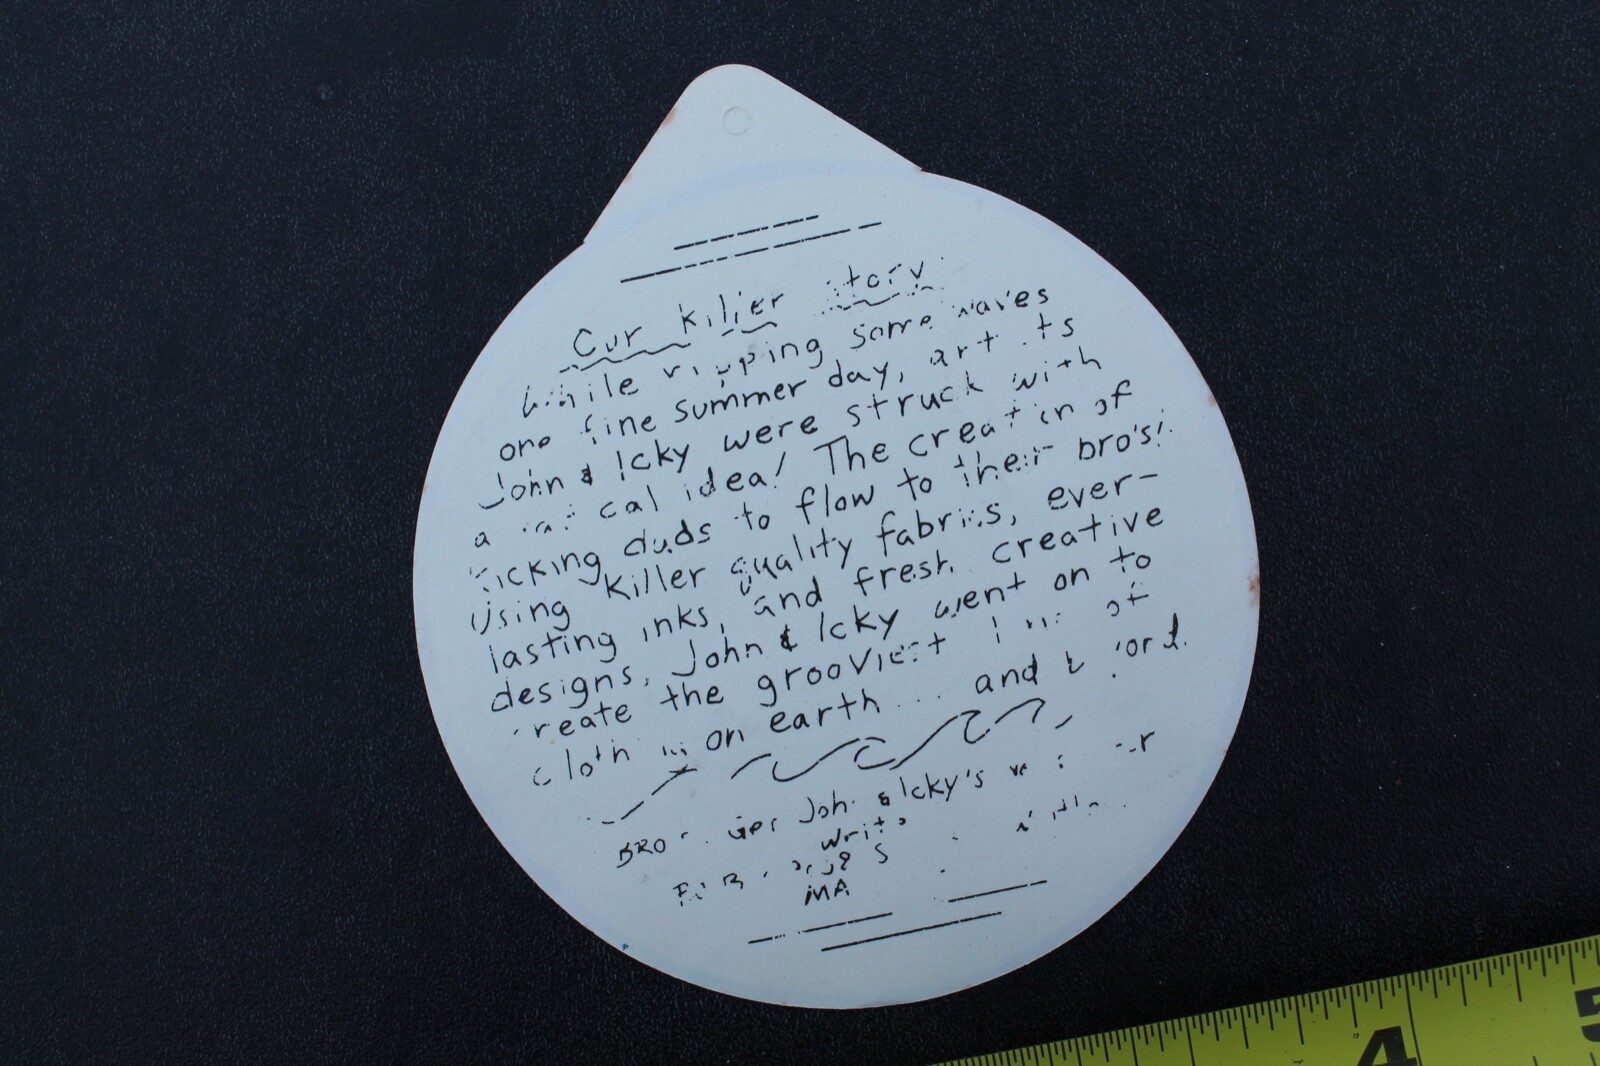 Our killer story
While ripping some waves
one fine summer day, artists
John & Icky were struck with
a radical idea! The creation of
kicking duds to flow to their bro's!
Using killer quality fabrics, ever-
lasting inks, and fresh creative
designs, John & Icky went on to
create the grooviest line of
clothing on earth... and beyond.
John & Icky's
write
MA
4 5